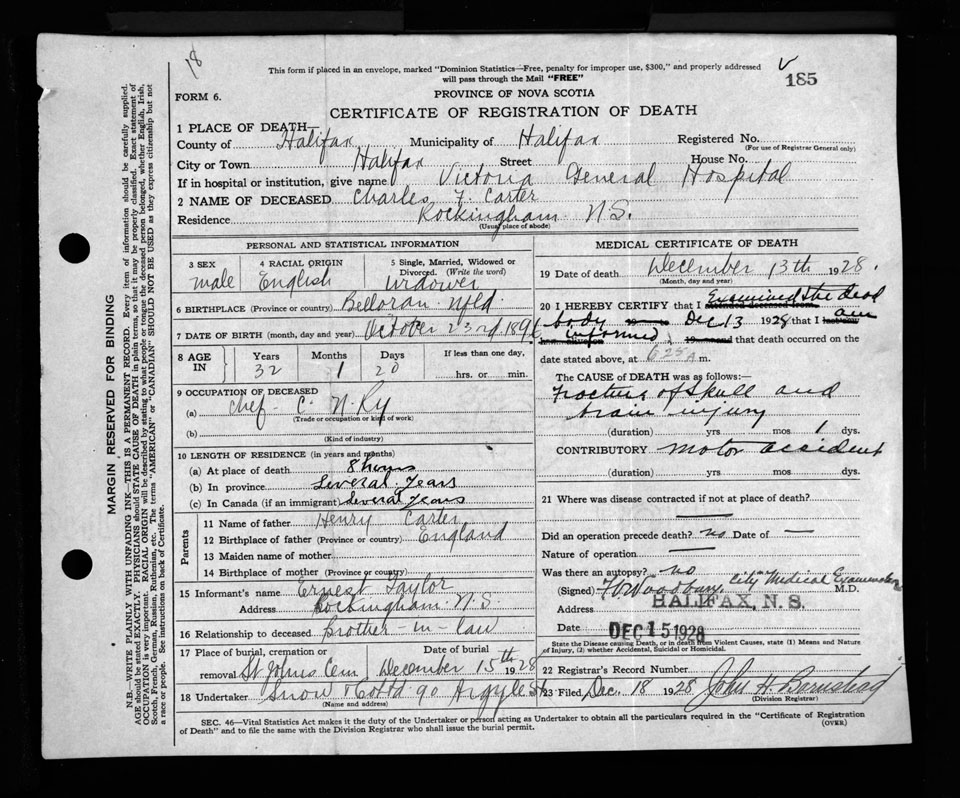 18
This form if placed in an envelope, marked "Dominion Statistics—Free, penalty for improper use, $300," and properly addressed
will pass through the Mail "FREE"
185
PROVINCE OF NOVA SCOTIA
FORM 6.
CERTIFICATE OF REGISTRATION OF DEATH
1 PLACE OF DEATH—
County of Halifax Municipality of Halifax Registered No.
(For use of Registrar General only)
City or Town Halifax Street House No.
If in hospital or institution, give name Victoria General Hospital
2 NAME OF DECEASED Charles F. Carter
Residence Rockingham N.S.
(Usual place of abode)
MARGIN RESERVED FOR BINDING
N.B.—WRITE PLAINLY WITH UNFADING INK—THIS IS A PERMANENT RECORD. Every item of information should be carefully supplied.
AGE should be stated EXACTLY. PHYSICIANS should STATE CAUSE OF DEATH in plain terms, so that it may be properly classified. Exact statement of
OCCUPATION is very important. RACIAL ORIGIN will be described by stating to what people or tongue the deceased person belonged, whether English, Irish,
Scotch, French, German, Russian, Ruthenian, etc. The terms "AMERICAN" or "CANADIAN" SHOULD NOT BE USED as they express citizenship but not
a race or people. See instructions on back of Certificate.
PERSONAL AND STATISTICAL INFORMATION
3 SEX male
4 RACIAL ORIGIN English
5 Single, Married, Widowed or
Divorced. (Write the word)
Widower
6 BIRTHPLACE (Province or country) Belloran Nfld.
7 DATE OF BIRTH (month, day and year) October 23rd 1896
8 AGE IN
Years Months Days If less than one day,
32 1 20 hrs. or min.
9 OCCUPATION OF DECEASED
(a) chef C. N. Ry
(Trade or occupation or kind of work)
(b)
(Kind of industry)
10 LENGTH OF RESIDENCE (in years and months)
(a) At place of death 8 hours
(b) In province Several Years
(c) In Canada (if an immigrant) Several Years
Parents
11 Name of father Henry Carter
12 Birthplace of father (Province or country) England
13 Maiden name of mother
14 Birthplace of mother (Province or country)
15 Informant's name Ernest Taylor
Address Rockingham N.S.
16 Relationship to deceased Brother-in-law
17 Place of burial, cremation or Date of burial
removal St Johns Cem. December 15th 1928
18 Undertaker Snow & Co Ltd 90 Argyle St
(Name and address)
MEDICAL CERTIFICATE OF DEATH
19 Date of death December 13th 1928.
(Month, day and year)
20 I HEREBY CERTIFY that I Examined the dead
body Dec 13 1928 that I am
informed, 19 and that death occurred on the
date stated above, at 6 25 A m.
The CAUSE OF DEATH was as follows:—
Fracture of Skull and
brain injury
(duration) yrs mos 1 dys.
CONTRIBUTORY motor accident
(duration) yrs. mos. dys.
21 Where was disease contracted if not at place of death?
Did an operation precede death? no Date of —
Nature of operation
Was there an autopsy? no
(Signed) City Medical Examiner M.D.
Address HALIFAX, N. S.
Date DEC 15 1928
State the Disease causing Death, or in deaths from Violent Causes, state (1) Means and Nature
of Injury, (2) whether Accidental, Suicidal or Homicidal.
22 Registrar's Record Number
23 Filed Dec. 18 1928 John H. Barnstead
(Division Registrar)
SEC. 46—Vital Statistics Act makes it the duty of the Undertaker or person acting as Undertaker to obtain all the particulars required in the "Certificate of Registration
of Death" and to file the same with the Division Registrar who shall issue the burial permit.
(OVER)